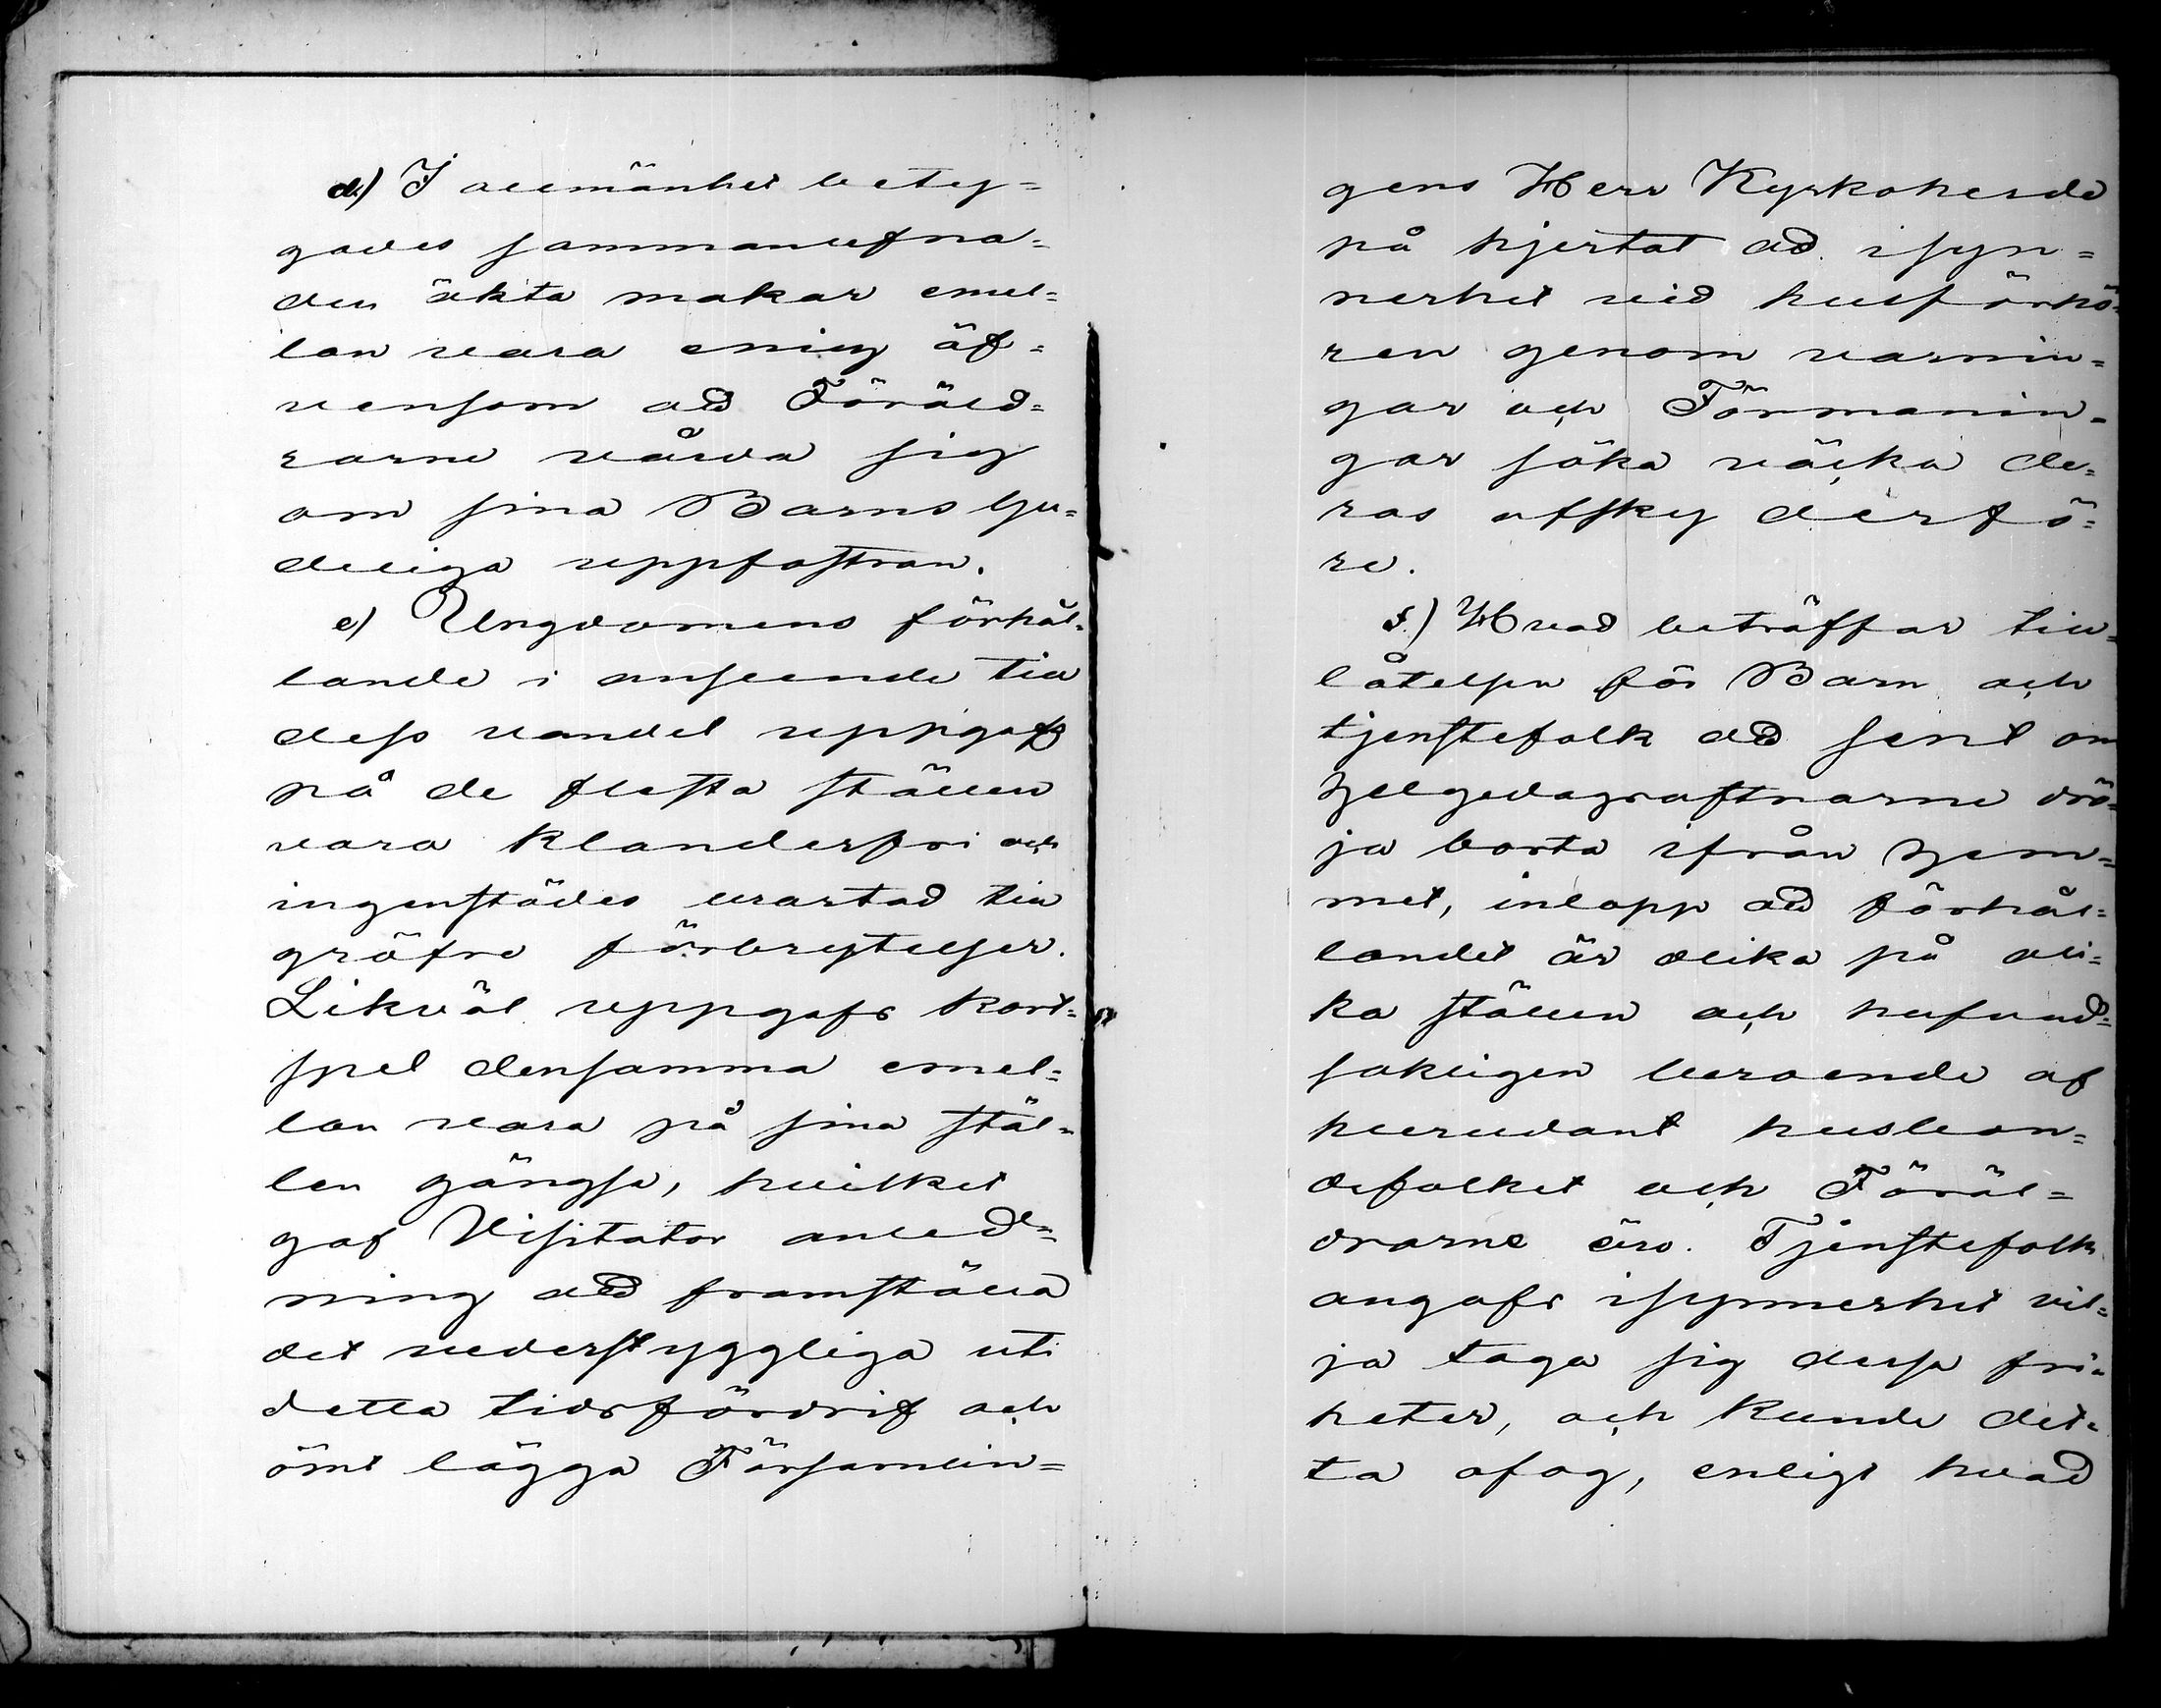 d.) I allmänhet bety=
gades sammanlefna=
den äkta makar emel=
lan vara enig äf=
vensom att Föräld=
rarne vårda sig
om sina Barns Gu=
deliga uppfostran.
e) Ungdomens förhål=
lande i anseende till
dess vandel uppgafs
på de flesta ställen
vara klanderfri och
ingenstädes urartad till
gräfre förbrytelser.
Likväl uppgafs kort=
spel densamma emel=
lan vara på sina stäl=
len gängse, hvilket
gaf Visitator anled=
ning att framställa
det vederstyggliga uti
detta tidsfördrif och
ömt lägga Församlin=
gens Herr Kyrkoherde
på hjertat att isyn=
nerhet vid husförhö=
ren genom varnin=
gar och Förmanin=
gar söka väcka de=
ras afsky derfö=
re.
f.) Hvad beträffar till=
låtelsen för Barn och
tjenstefolk att sent om
helgedagsaftnarne drö=
ja borta ifrån hem=
met, inlopp att förhål=
landet är olika på oli=
ka ställen och hufvud=
sakligen beroende af
hurudant husbon=
defolket och Föräl=
drarne äro. Tjenstefolk
angafs isynnerhet vil=
ja taga sig dessa fri=
heter, och kunde det=
ta ofog, enligt hvad